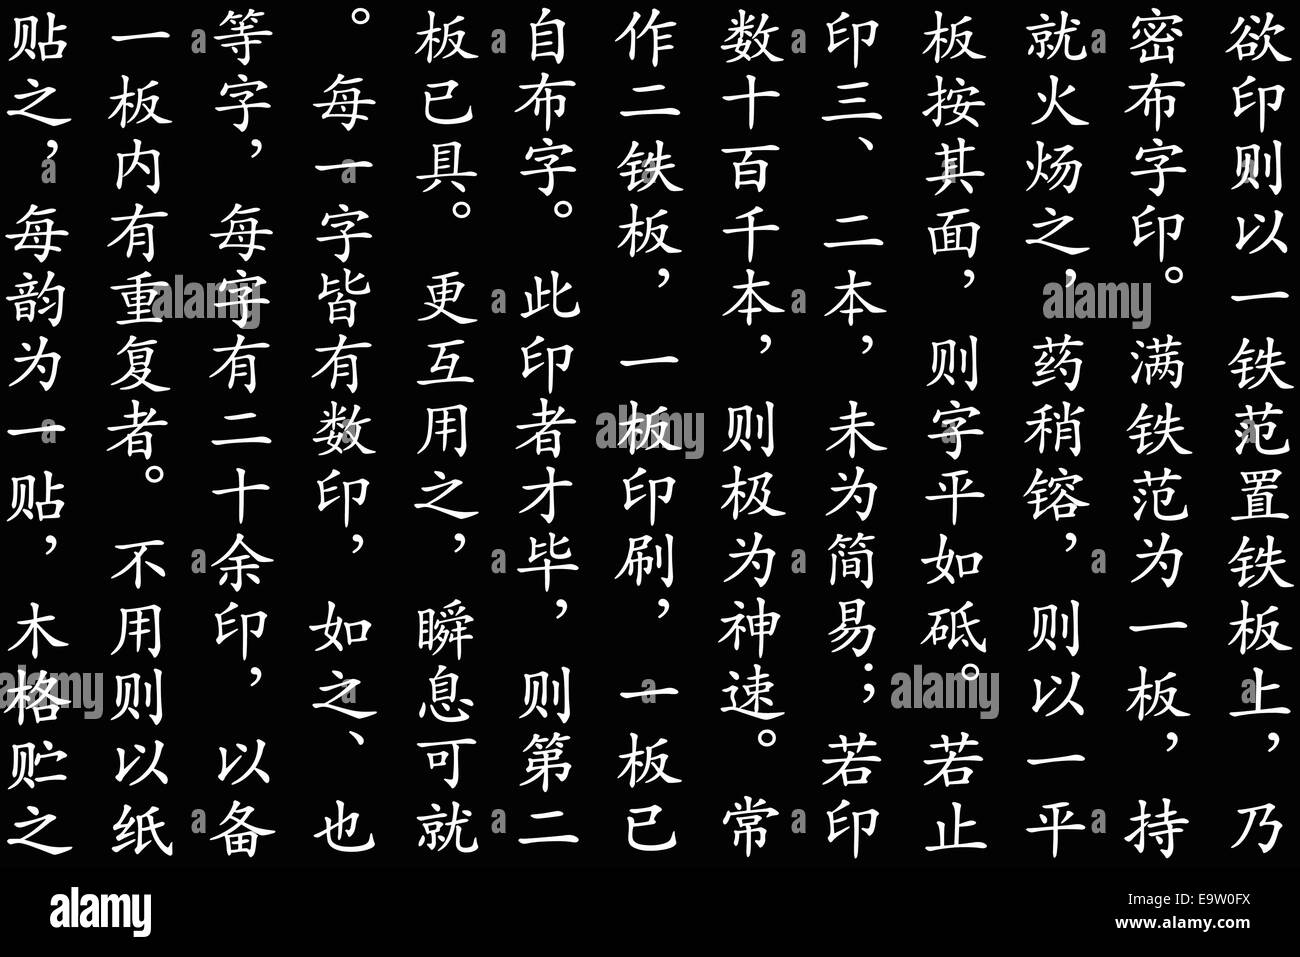 欲印则以一铁范置铁板上，乃
密布字印。满铁范为一板，持
就火炀之，药稍镕，则以一平
板按其面，则字平如砥。若止
印三、二本，未为简易；若印
数十百千本，则极为神速。常
作二铁板，一板印刷，一板已
自布字。此印者才毕，则第二
板已具。更互用之，瞬息可就
。每一字皆有数印，如之、也
等字，每字有二十余印，以备
一板内有重复者。不用则以纸
贴之，每韵为一贴，木格贮之
alamy
Image ID: E9W0FX
www.alamy.com